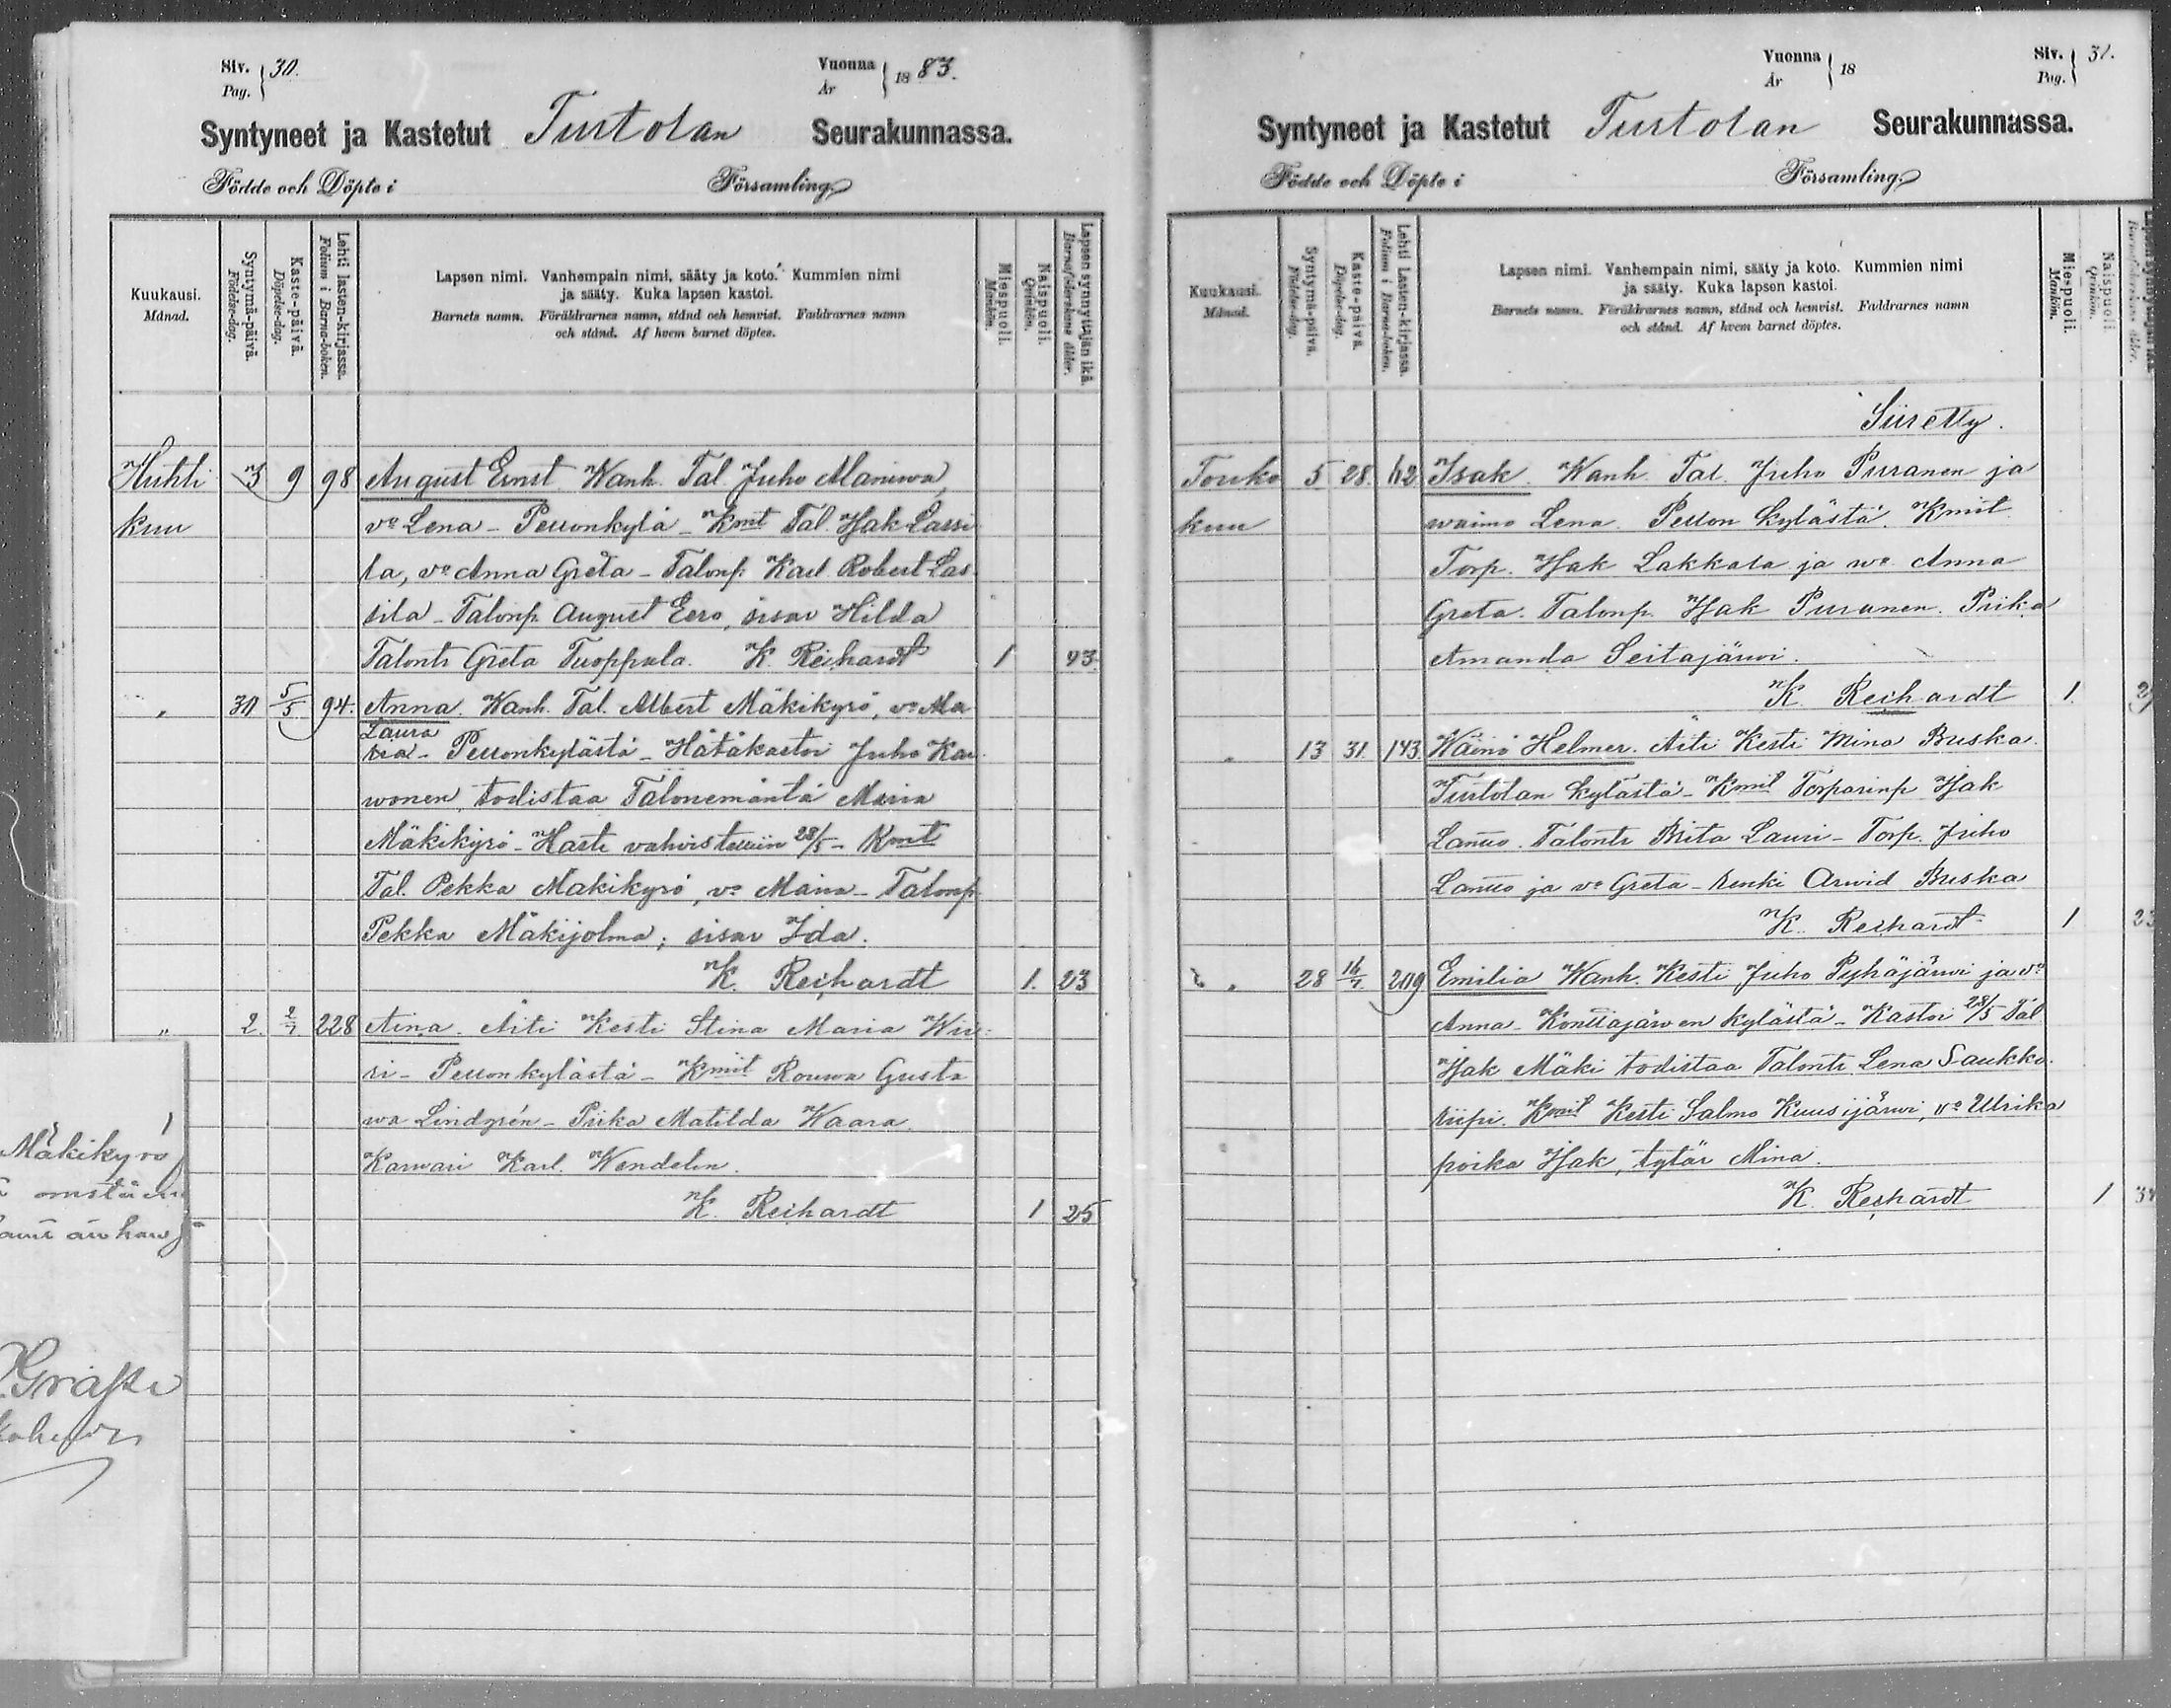 Siv. 30.
Pag.
Vuonna
År 1883.
Syntyneet ja Kastetut Turtolan Seurakunnassa.
Födde och Döpte i Församling
Kuukausi.
Månad.
Syntymä-päivä.
Födelse-dag.
Kaste-päivä.
Döpelse-dag.
Lehti lasten-kirjassa.
Folium i Barna-boken.
Lapsen nimi. Vanhempain nimi, sääty ja koto. Kummien nimi
ja sääty. Kuka lapsen kastoi.
Barnets namn. Föräldrarnes namn, stånd och hemvist. Faddrarnes namn
och stånd. Af hvem barnet döptes.
Miespuoli.
Mankön.
Naispuoli.
Qvinkön.
Lapsen synnyttäjän ikä.
Barnaföderskans ålder.
Huhti 3 9 98 August Ernst Wanh. Tal. Juho Maniwa,
kuu vo Lena - Pellonkylä - Kmit Tal. Isak Lassi
la, vo Anna Greta - Talonp. Karl Robert Las
sila - Talonp. August Eero, sisar Hilda
Talontr Greta Tuoppala. K. Reichardt 1 43
" 30 5/5 94. Anna. Wanh. Tal. Albert Mäkikyrö, vo Ma
Laura
ria - Pellonkylästä - Hätäkastoi Juho Kau
wonen, todistaa Talonemäntä Maria
Mäkikyrö - Kaste vahvistettiin 28/5 - Kmit
Tal. Pekka Mäkikyrö, vo Maria - Talonp
Pekka Mäkijolma; sisar Ida.
K. Reichardt 1. 23
" 2. 2/7 228 Aina. Äiti Kesti Stina Maria Wir
ri - Pellonkylästä - Kmit Rouwa Gusta
wa Lindgrén - Piika Matilda Waara
Karwari Karl Wendelin.
K. Reichardt 1 25
Mäkikyrö
Siv. 31.
Pag.
Vuonna
År 18
Syntyneet ja Kastetut Turtolan Seurakunnassa.
Födde och Döpte i Församling
Kuukausi.
Månad.
Syntymä-päivä.
Födelse-dag.
Kaste-päivä.
Döpelse-dag.
Lehti Lasten-kirjassa.
Folium i Barna-boken.
Lapsen nimi. Vanhempain nimi, sääty ja koto. Kummien nimi
ja sääty. Kuka lapsen kastoi.
Barnets namn. Föräldrarnes namn, stånd och hemvist. Faddrarnes namn
och stånd. Af hvem barnet döptes.
Miespuoli.
Mankön.
Naispuoli
Qvinkön.
Siiretty.
Touko 5 28. 112 Isak. Wanh. Tal. Juho Puranen ja
kuu waimo Lena. Pellon kylästä. Kmit
Torp. Isak Lakkala ja wo Anna
Greta. Talonp. Isak Puranen. Piika
Amanda Seitajärwi.
K. Reichardt 1.
" 13 31. 143. Wäinö Helmer. Äiti Kesti Mina Buska.
Turtolan kylästä - Kmit Torparinp Isak
Lantto. Talontr Brita Lauri - Torp. Juho
Lantto ja vo Greta - renki Arwid Buska
K. Reichardt 1 23
" 28 16/7. 209 Emilia Wanh. Kesti Juho Pyhäjärwi ja vo
Anna - Konttajärwen kylästä - Kastoi 28/5 Tal
Isak Mäki todistaa Talontr. Lena Saukko
riipi. Kmit Kesti Salmo Kuusijärwi, vo Ulrika
poika Isak, tytär Mina.
K. Reichardt 1